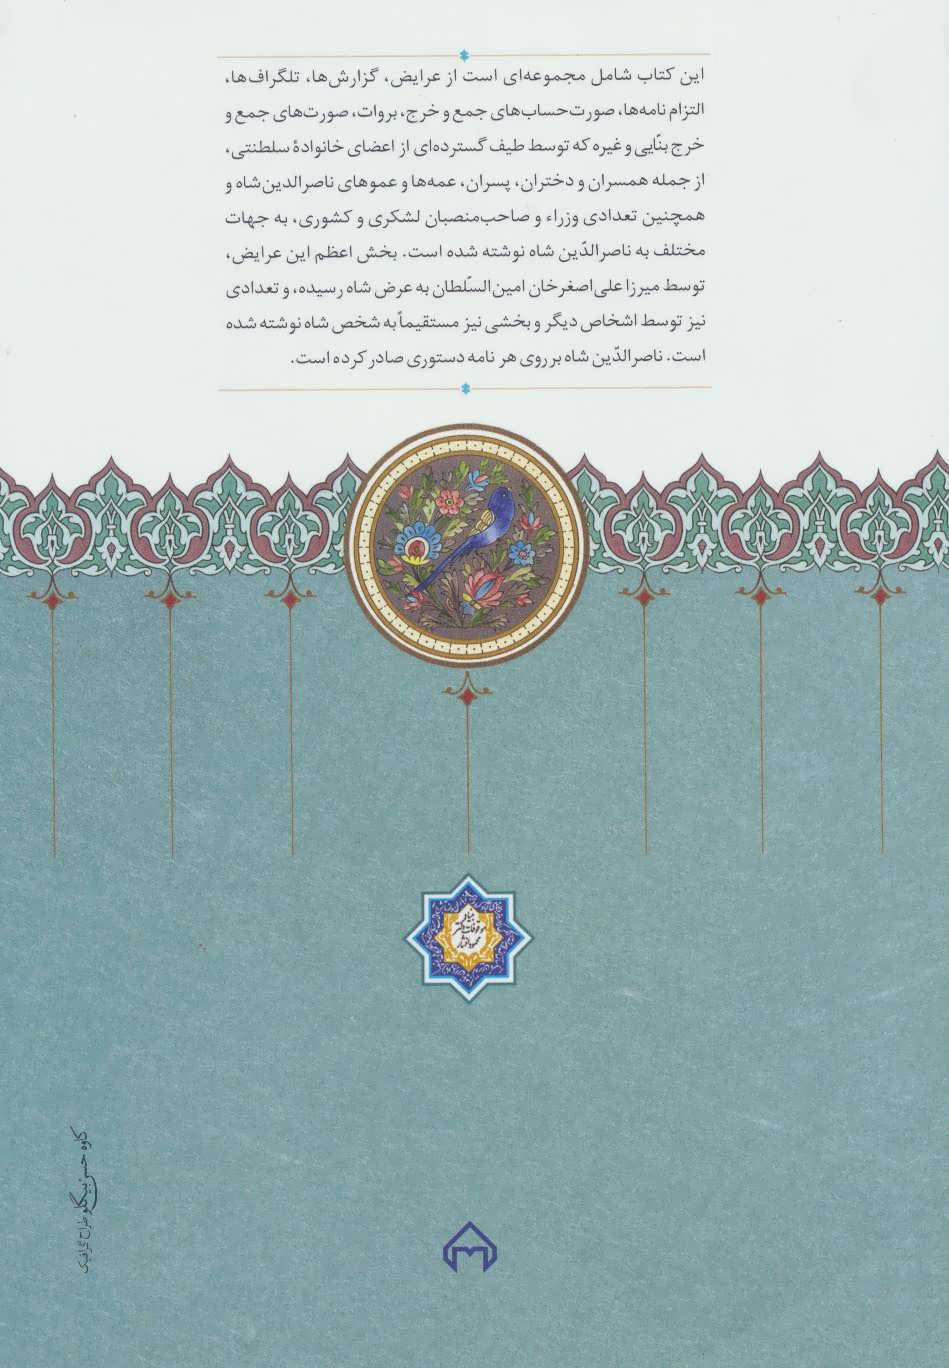 این کتاب شامل مجموعه‌ای است از عرایض، گزارش‌ها، تلگراف‌ها،
التزام نامه‌ها، صورت‌حساب‌های جمع و خرج، بروات، صورت‌های جمع و
خرج بنّایی و غیره که توسط طیف گسترده‌ای از اعضای خانوادهٔ سلطنتی،
از جمله همسران و دختران، پسران، عمه‌ها و عموهای ناصرالدین‌شاه و
همچنین تعدادی وزراء و صاحب‌منصبان لشکری و کشوری، به جهات
مختلف به ناصرالدّین شاه نوشته شده است. بخش اعظم این عرایض،
توسط میرزا علی‌اصغرخان امین‌السّلطان به عرض شاه رسیده، و تعدادی
نیز توسط اشخاص دیگر و بخشی نیز مستقیماً به شخص شاه نوشته شده
است. ناصرالدّین شاه بر روی هر نامه دستوری صادر کرده است.
بنیاد
موقوفات دکتر
محمود افشار
کاوه حسن بیگلو طراح گرافیک